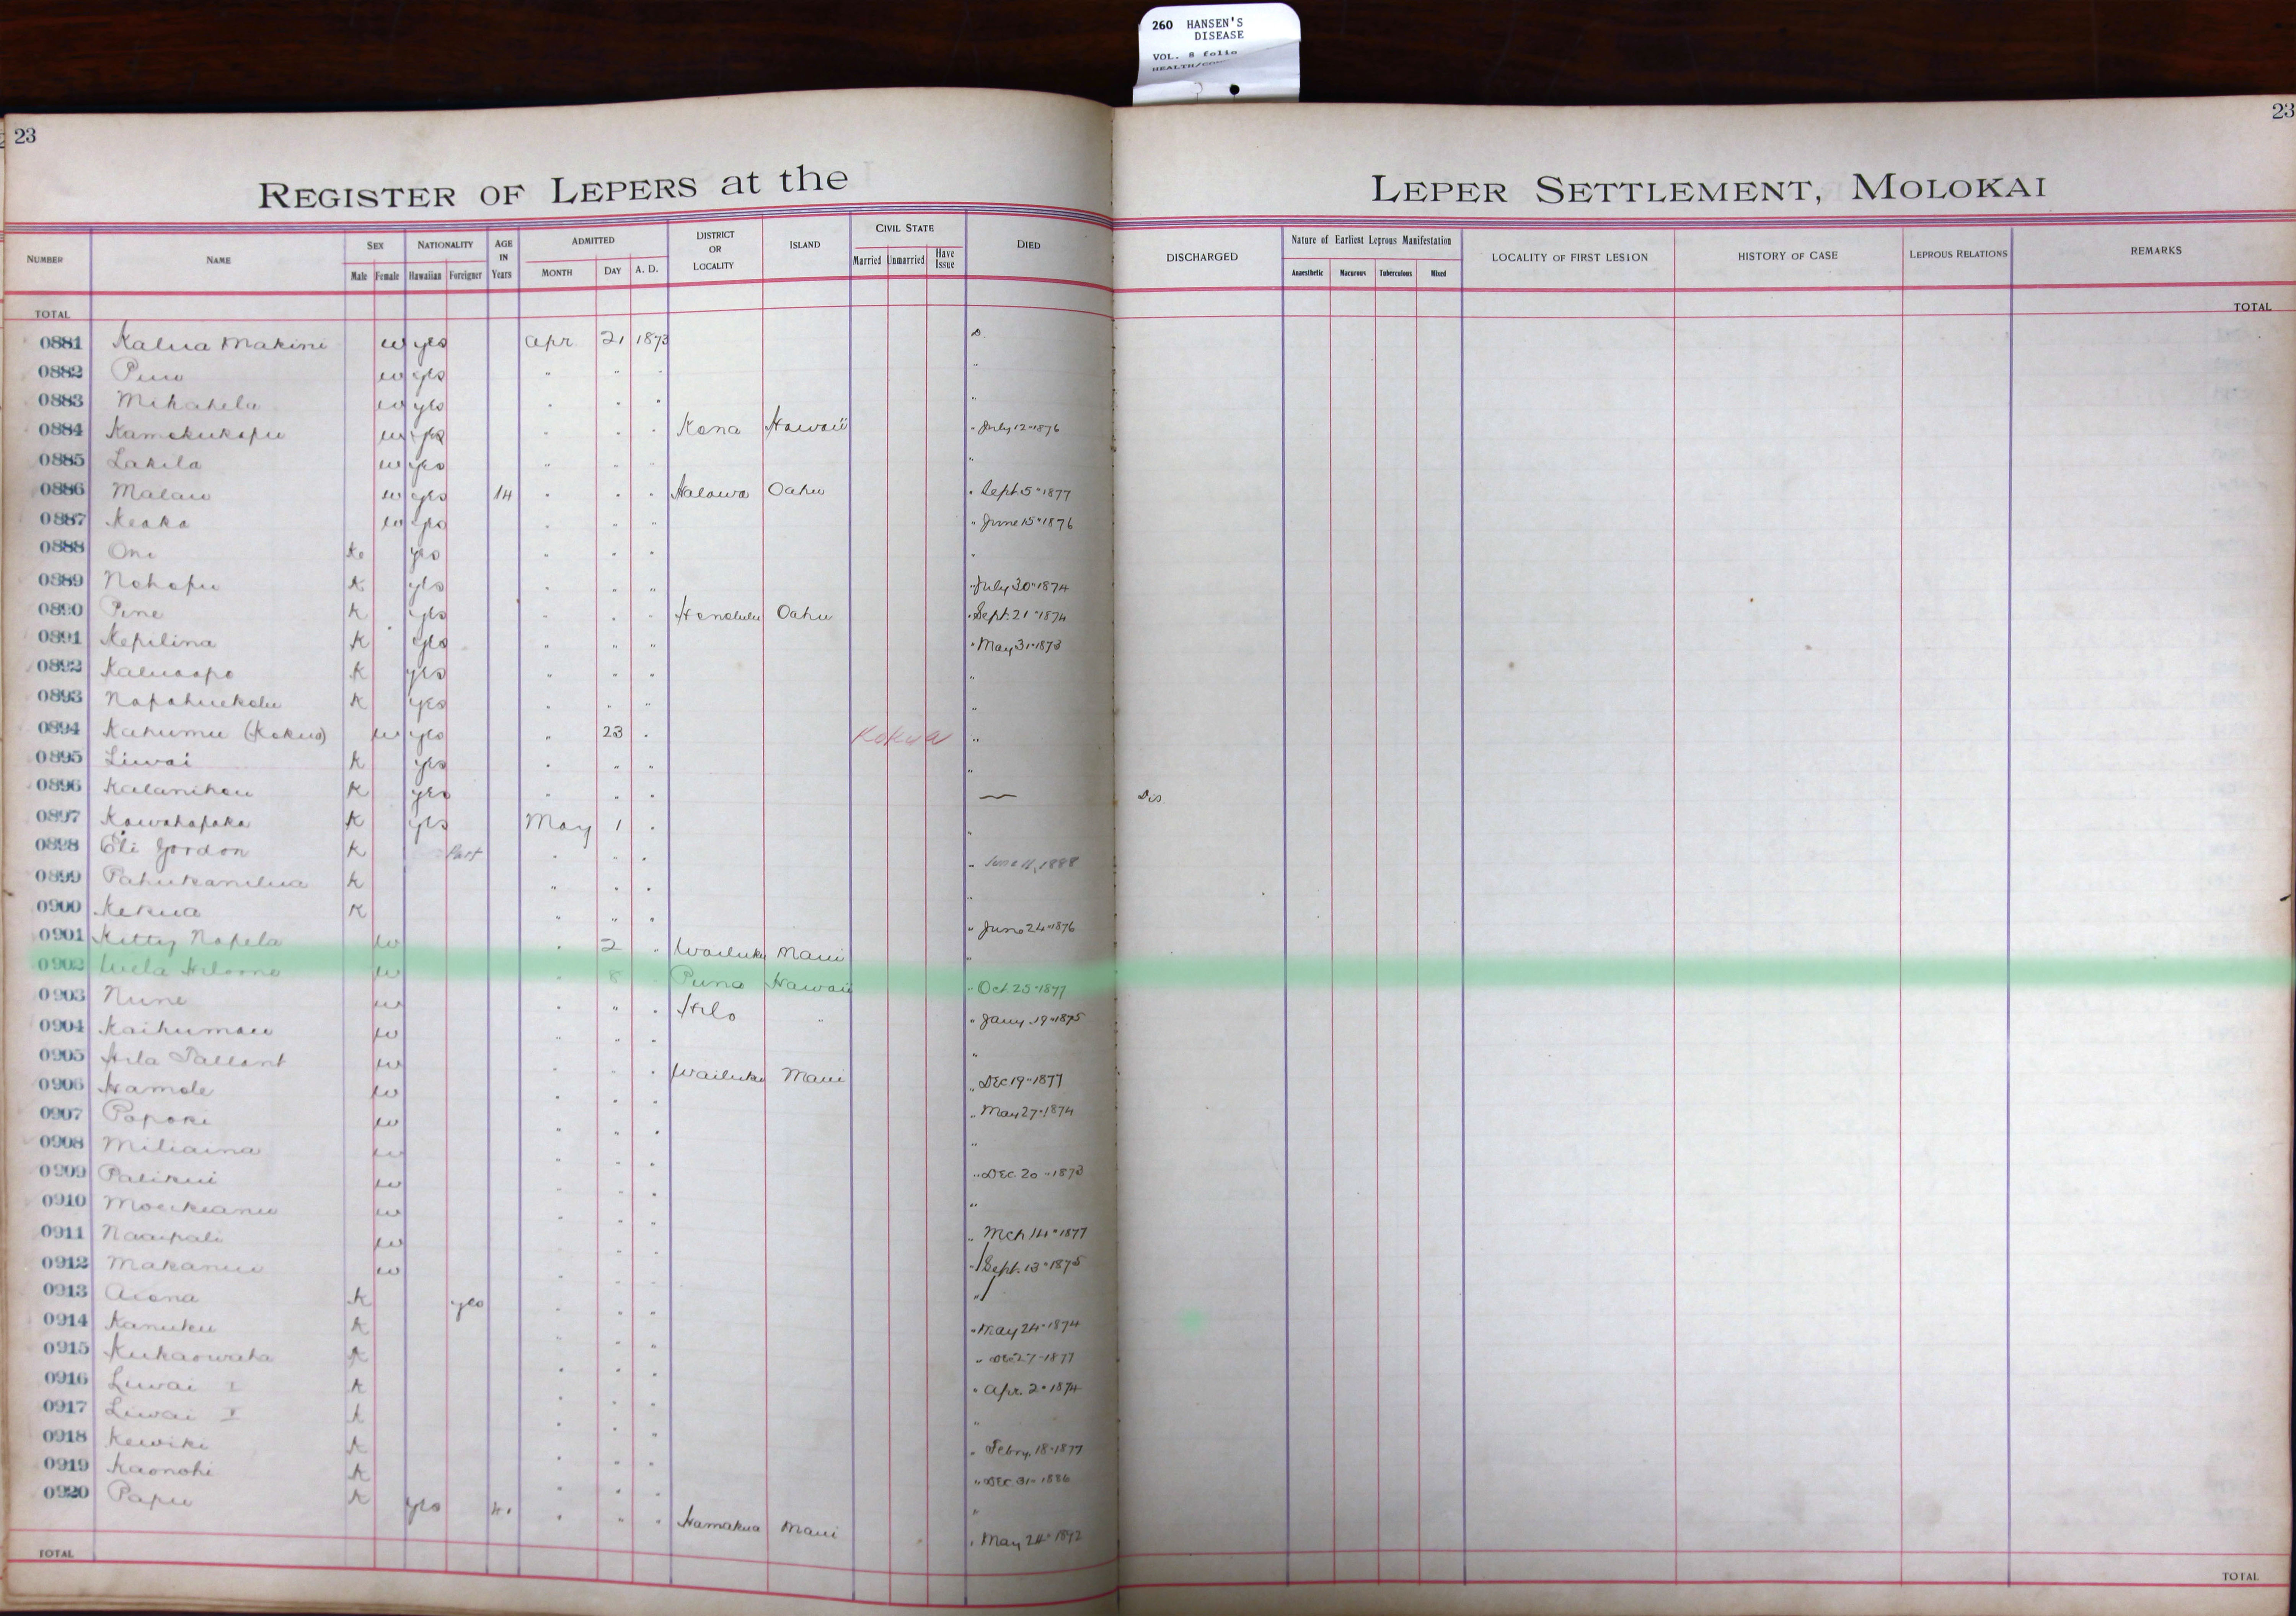 260 HANSEN'S
DISEASE
VOL. 8 folio
23
23
REGISTER OF LEPERS at the LEPER SETTLEMENT, MOLOKAI
NUMBER NAME SEX NATIONALITY AGE IN Years ADMITTED DISTRICT OR LOCALITY ISLAND CIVIL STATE DIED DISCHARGED Nature of Earliest Leprous Manifestation LOCALITY OF FIRST LESION HISTORY OF CASE LEPROUS RELATIONS REMARKS
Male Female Hawaiian Foreigner MONTH DAY A. D. Married Unmarried Have Issue Anaesthetic Macurous Tuberculous Mixed
TOTAL TOTAL
0881 Kalua Makini w yes Apr 21 1873 D.
0882 w yes " " " "
0883 Mikahela w yes " " " "
0884 Kamokukapu w yes " " " Kona Hawaii " July 12 " 1876
0885 Lakila w yes " " " "
0886 Malau w yes 14 " " " Halawa Oahu " Sept. 5 " 1877
0887 Keaka w yes " " " " June 15 " 1876
0888 Oni K yes " " " "
0889 Nohopu K yes " " " " July 30 " 1874
0890 Pine K yes " " " Honolulu Oahu " Sept. 21 " 1874
0891 Kepilina K yes " " " " May 31 " 1873
0892 K yes " " " "
0893 Napahuekolu K yes " " " "
0894 Kahumu (Kokua) w yes " 23 " Kokua "
0895 Liwai K yes " " " "
0896 Kalanihou K yes " " " — Dis
0897 Kawahapaka K yes May 1 " "
0898 Eli Gordon K Part " " " " June 11, 1888
0899 Pahukanilua K " " " "
0900 Kekua K " " " " June 24 " 1876
0901 Kitty Napela w " 2 " Wailuku Maui "
0902 w " 8 " Puna Hawaii " Oct. 25 " 1877
0903 Nune w " " " Hilo " " Jany. 19 " 1875
0904 Kaihumau w " " " "
0905 w " " " Wailuku Maui " Dec 19 " 1877
0906 Hamole w " " " " May 27 " 1874
0907 Popoki w " " " "
0908 Miliaina w " " " " Dec. 20 " 1873
0909 Palikui w " " " "
0910 w " " " " Mch 14 " 1877
0911 Naaipali w " " " " Sept. 13 " 1875
0912 Makanui w " " " "
0913 Aiona K yes " " " " May 24 " 1874
0914 Kanuku K " " " " Dec 27 " 1877
0915 K " " " " Apr. 2 " 1874
0916 Liwai I K " " " "
0917 Liwai K " " " " Febry. 18 " 1877
0918 Kewiki K " " " " Dec 31 " 1886
0919 Kaonohi K " " " "
0920 Papu K yes " " " Hamakua Maui " May 24 " 1892
TOTAL TOTAL